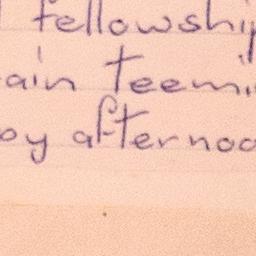 fellowshi
ain teemi
oy afternoo